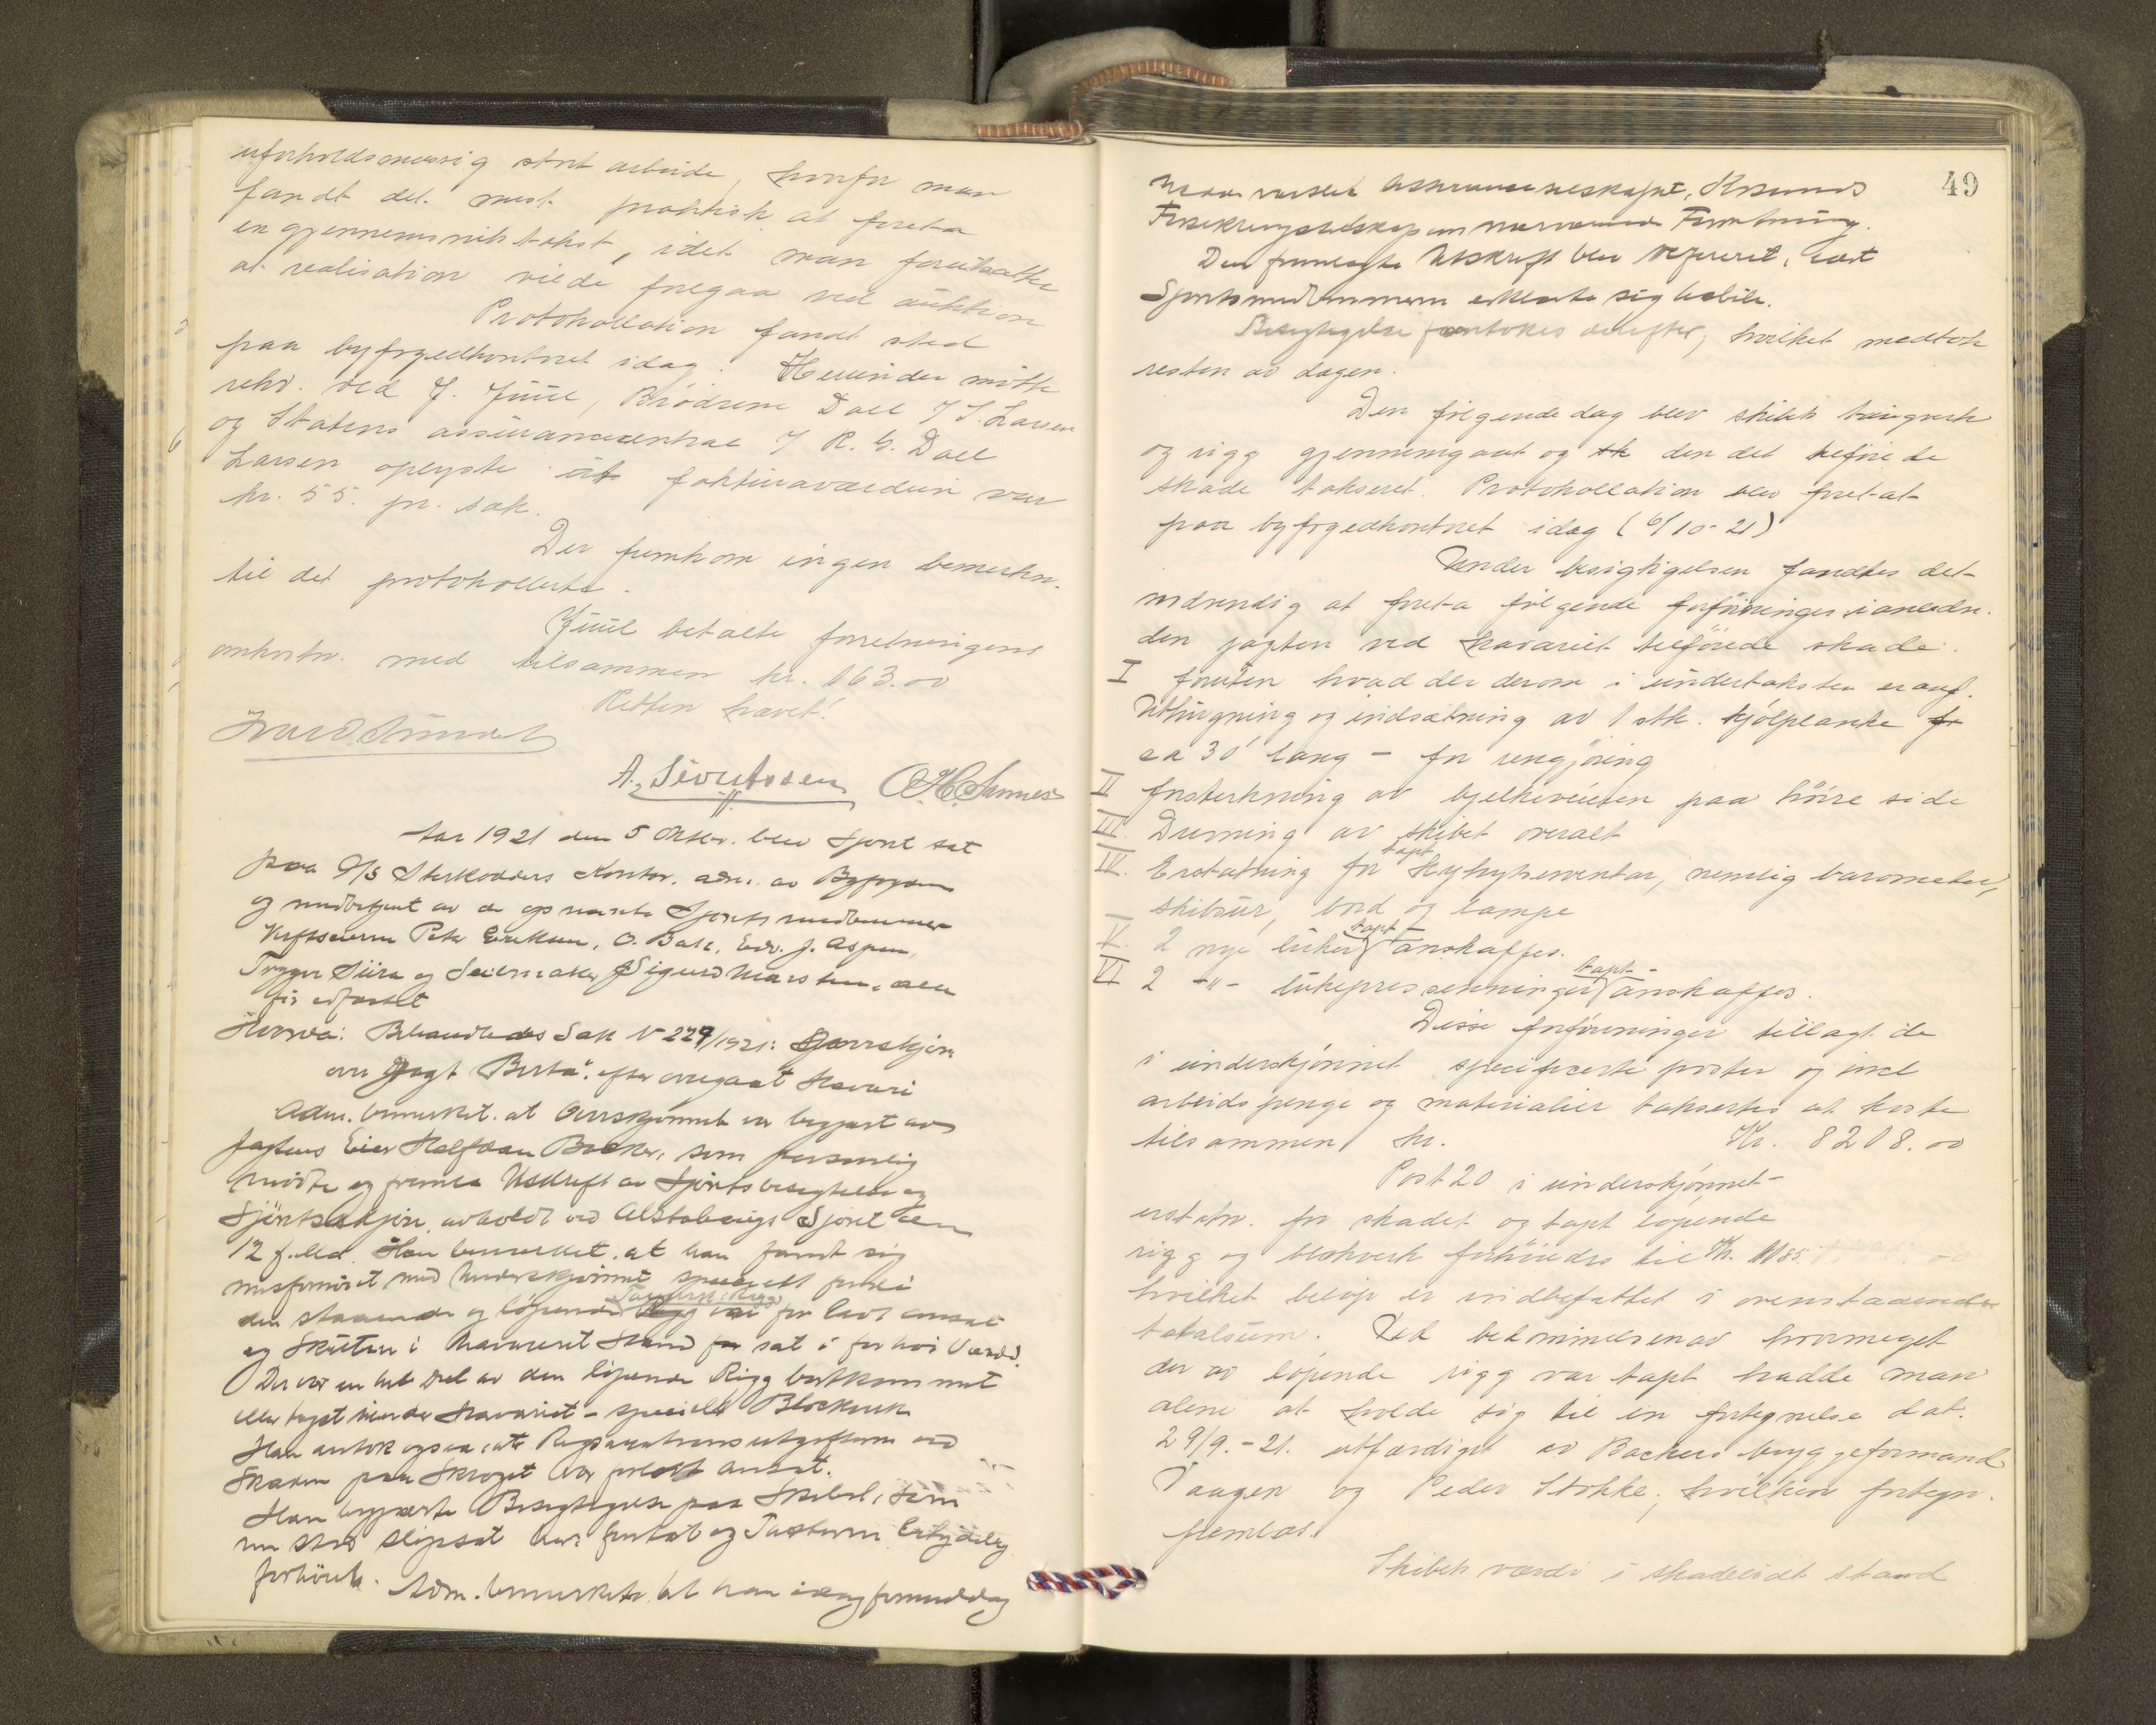 uforholdsmæssig stort arbeide, hvorfor man
fandt det mest praktisk at foreta
en gjennemsnitstakst, idet man forutsatte
at realisation vilde foregaa ved auktion
Protokollation fandt sted
paa byfogedkontoret idag. Herunder mötte
rekv. ved J. Juul, Brödrene Dall v/ S. Larsen
og Statens assurancecentral v/ R. G. Dall
Larsen oplyste at fakturaværdien var
kr. 55. pr. sak.
Der fremkom ingen bemerkn.
til det protokollerte.
Juul betalte forretningens
omkostn. med tilsammen kr. 163.00
Retten hævet!
A. Sivertssen O.H. Sannes
Aar 1921 den 5 Oktbr. blev Sjøret sat
paa D/S Sterkodders Kontor, adm. av Byfogden
og medbetjent av de opnævnte Sjøretsmedlemmer
Verftseierne Peter Eriksen, O. Dall, Edv. J. Aspen,
Trygve Siira og Seilmaker Sigurd Marsten, alle
før edfæstet
Hvorda: Behandledes Sak N 229/1921: Overskjön
over Jagt "Berta" efter overgaat Havari
Adm. bemerket at Overskjönnet var begjært av
Jagtens Eier Halfdan Backer, som personlig
mödte og fremla Utskrift av Sjöretsbesigtelse og
Sjöretsskjön, avholdt ved Alstahaugs Sjöret den
12 f. Md. Han bemerket at han fandt sig
misfornöiet med Underskjönnet specielt fordi
den staaende og löpende Rigg var for lavt ansat
Taugverk, Rigg
og Skuten i havareret Stand for sat i for höi Værdi.
Der var en hel Del av den löpende Rigg bortkommet
eller tapt under Havariet - specielt Blockverk
Han antok ogsaa at Reparationsutgifterne ved
Skaden paa Skroget var for lavt ansat.
Han begjærte Besigtigelse paa Skibet, som
nu stod slipsat her foretat og Taksterne betydelig
forhöiet. Adm. bemerkete at han idag formiddag
49
har varslet Assuranceselskapet, Kr.sunds
Forsikringsselskap om nærværende Forretning.
Den fremlagte Utskrift blev refereret, læst
Sjöretsmedlemmerne erklærte sig habile.
Besigtigelse foretokes derefter, hvilket medtok
resten av dagen.
Den fölgende dag blev skibets taugverk
og rigg gjennemgaat og sk den det tilförte
skade takseret. Protokollation blev foretat
paa byfogedkontoret idag (6/10-21)
Under besigtigelsen fandtes det
nödvendig at foreta fölgende forföininger i anledn.
den jagten ved havariet tilförede skade:
I foruten hvad der derom i undertaksten er anf.
Uthugning og indsætning av 1 stk. kjölplanke fr
ca 30' lang - for rengjöring
II Forsterkning av bjelkeveieren paa höire side
III. Drivning av skibet overalt
IV. Erstatning for tapt Kahytsinventar, nemlig barometer,
skibsur, bord og lampe
V. 2 nye luker tapt anskaffes.
VI 2 -"- lukepresenninger tapt anskaffes.
Disse forföininger tillagt de
i underskjönnet specificerte poster og incl
arbeidspenge og materialier taksertes at koste
tilsammen kr. Kr. 8208.00
Post 20 i underskjönnet -
erstatn. for skadet og tapt löpende
rigg og blokverk forhöiedes til Kr. 1185.
hvilket belöp er indbefattet i ovenstaaende
totalsum. Ved bedömmelsen av hvormeget
der av löpende rigg var tapt hadde man
alene at holde sig til en fortegnelse dat.
29/9.-21. utfærdiget av Backers bryggeformand
Vaagen og Peder Stokke, hvilken fortegn.
fremlaa.
Skibets værdi i skadelidt stand